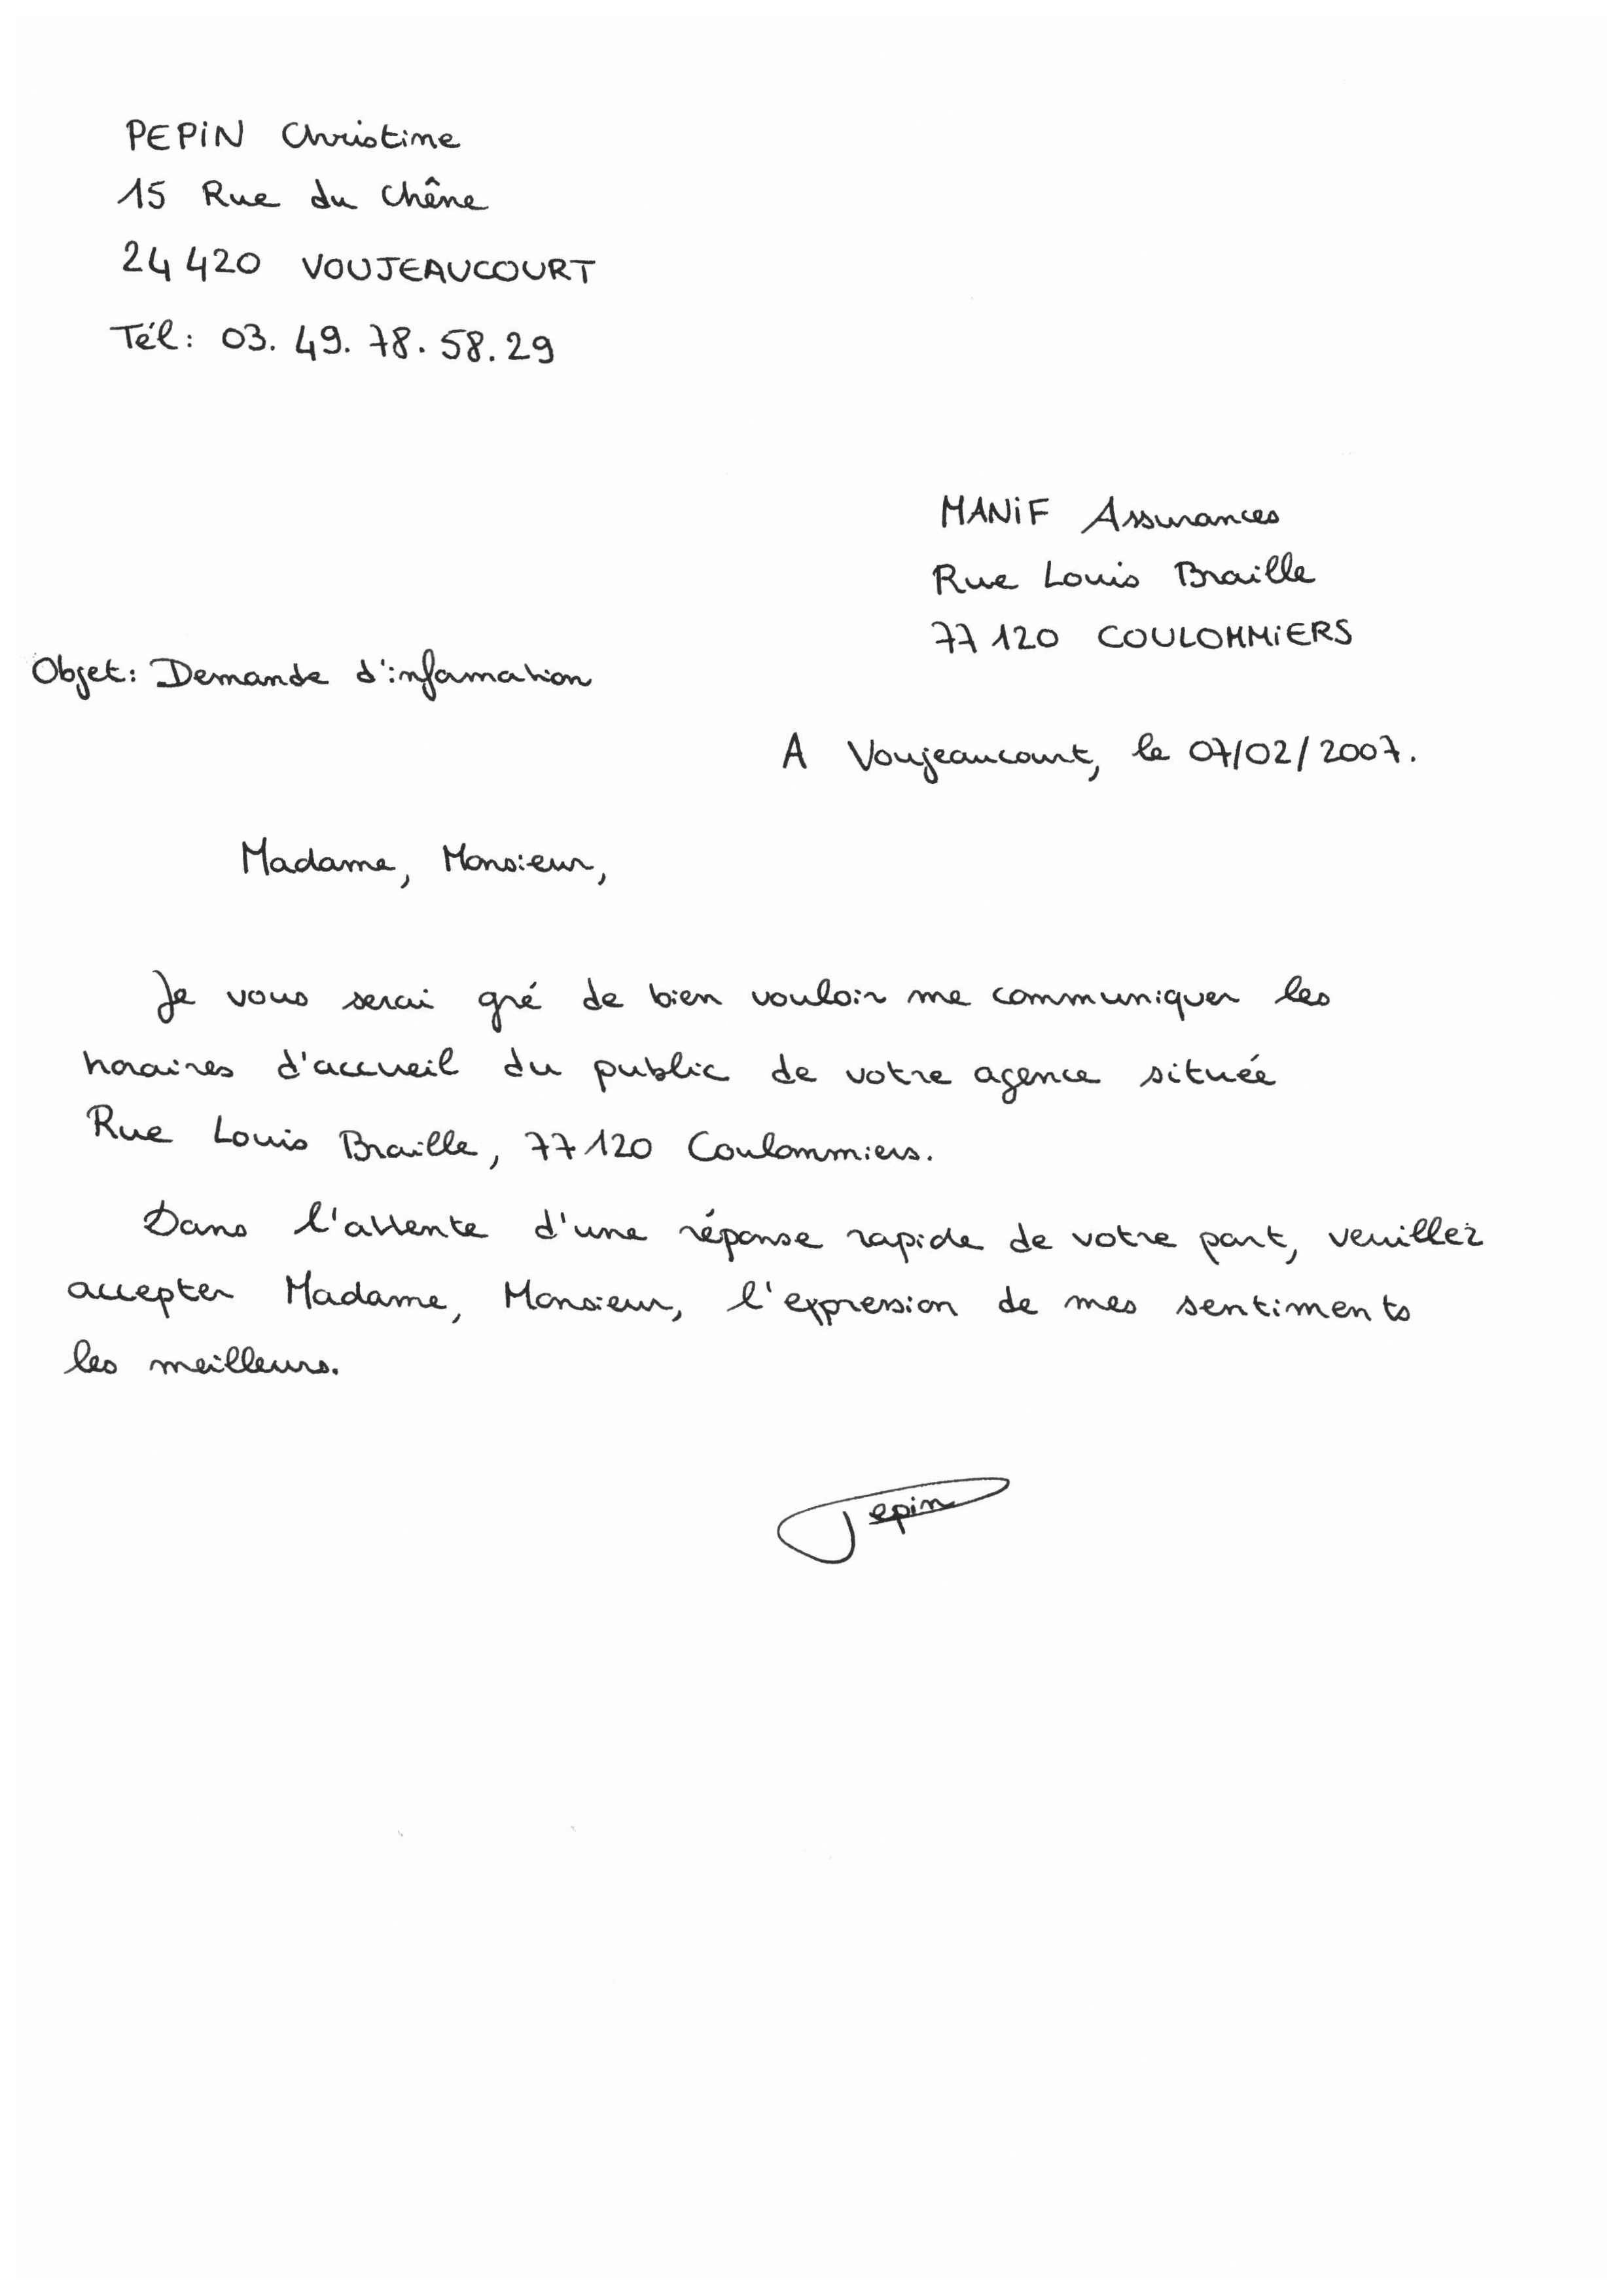 PEPIN Christine
15 Rue du Chêne
24 420 VOUJEAUCOURT
Tél: 03. 49. 78. 58. 29
MANIF Assurances
Rue Louis Braille
77 120 COULOMMIERS
Objet: Demande d'information
A Voujeaucourt, le 07/02/2007.
Madame, Monsieur,
Je vous serai gré de bien vouloir me communiquer les
horaires d'accueil du public de votre agence située
Rue Louis Braille, 77 120 Coulommiers.
Dans l'attente d'une réponse rapide de votre part, veuillez
accepter Madame, Monsieur, l'expression de mes sentiments
les meilleurs.
Pepin